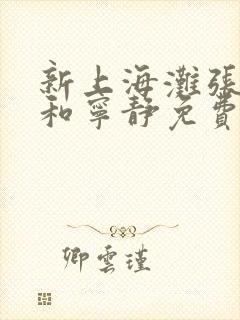 新上海灘張
和寧靜免費
卿雲瑾